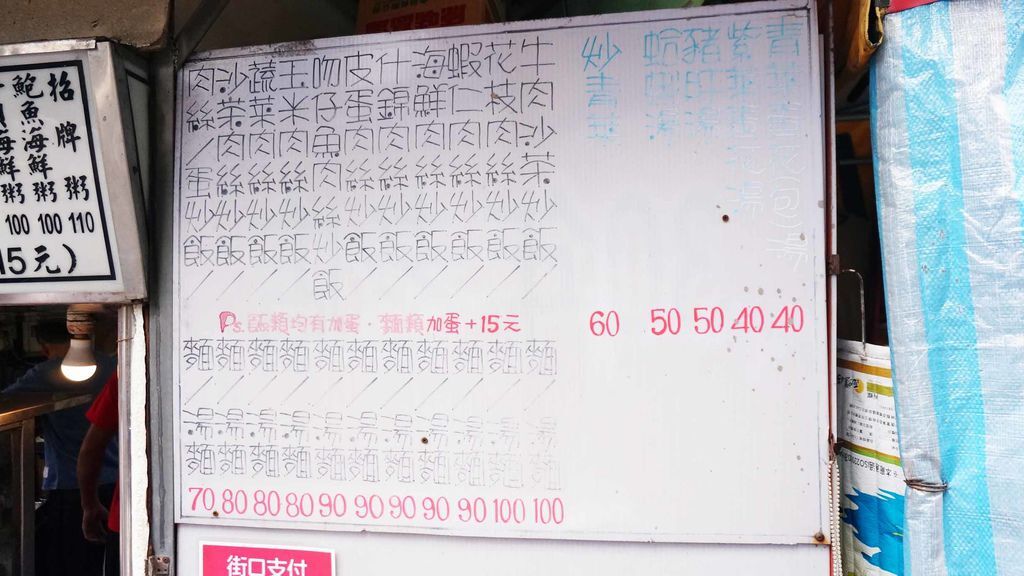 青菜蛋花湯 40
紫菜蛋花湯 40
豬肝湯 50
蛤蜊湯 50
炒青菜 60
牛肉沙茶炒飯/麵/湯麵 100
花枝肉絲炒飯/麵/湯麵 100
蝦仁肉絲炒飯/麵/湯麵 90
海鮮肉絲炒飯/麵/湯麵 90
什錦肉絲炒飯/麵/湯麵 90
皮蛋肉絲炒飯/麵/湯麵 90
吻仔魚肉絲炒飯/麵/湯麵 90
玉米肉絲炒飯/麵/湯麵 80
蔬菜肉絲炒飯/麵/湯麵 80
沙茶肉絲炒飯/麵/湯麵 80
肉絲/蛋炒飯/麵/湯麵 70
Ps.飯類均有加蛋．麵類加蛋+15元
招牌粥 110
鮑魚海鮮粥 100
海鮮粥 100
15元)
街口支付